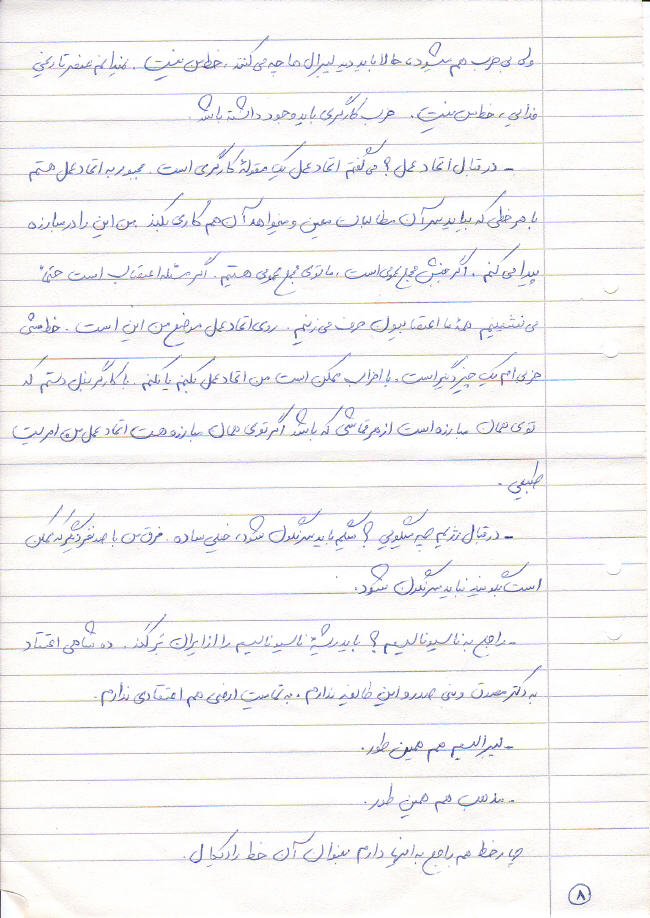 ولی بی حزب هم میشود، حالا باید دید لیبرال ها چه می کنند، خط من نیست. نمیدانم عنصر تاریخی
فدایی، خط من نیست. حزب کارگری باید وجود داشته باشد.
- در قبال اتحاد عمل؟ می گفتم اتحاد عمل یک مقولهٔ کارگری است. مجبور به اتحاد عمل هستم
با هر خطی که بیاید سر آن مطالبات معین و میخواهد آن هم کاری بکند من این را در مبارزه
پیدا می کنم. اگر جنبش مجمع عمومی است، ما توی مجمع عمومی هستیم. اگر مسئله اعتصاب است حتماً
می نشینیم همهٔ ما اعتصابیون حرف می زنیم. روی اتحاد عمل موضع من این است. خط مشی
حزبی ام یک چیز دیگر است. با احزاب ممکن است من اتحاد عمل بکنم یا نکنم. با کارگر بغل دستم که
توی همان مبارزه است از هر قماشی که باشد اگر توی همان مبارزه هست اتحاد عمل من امریست
طبیعی.
- در قبال رژیم چه میگویی؟ میگویم باید سرنگون شود، خیلی ساده. فرق من با صد نفر دیگر که ممکن
است بگویند نباید سرنگون شود.
- راجع به ناسیونالیسم؟ باید ریشهٔ ناسیونالیسم را از ایران بر کند. ده شاهی اعتقاد
به دکتر مصدق و بنی صدر و این طایفه ندارم، به تمامیت ارضی هم اعتقادی ندارم.
- لیبرالیسم هم همین طور.
- مذهب هم همین طور.
چهار خط هم راجع به اینها دارم بعنوان آن خط رادیکال.
۸